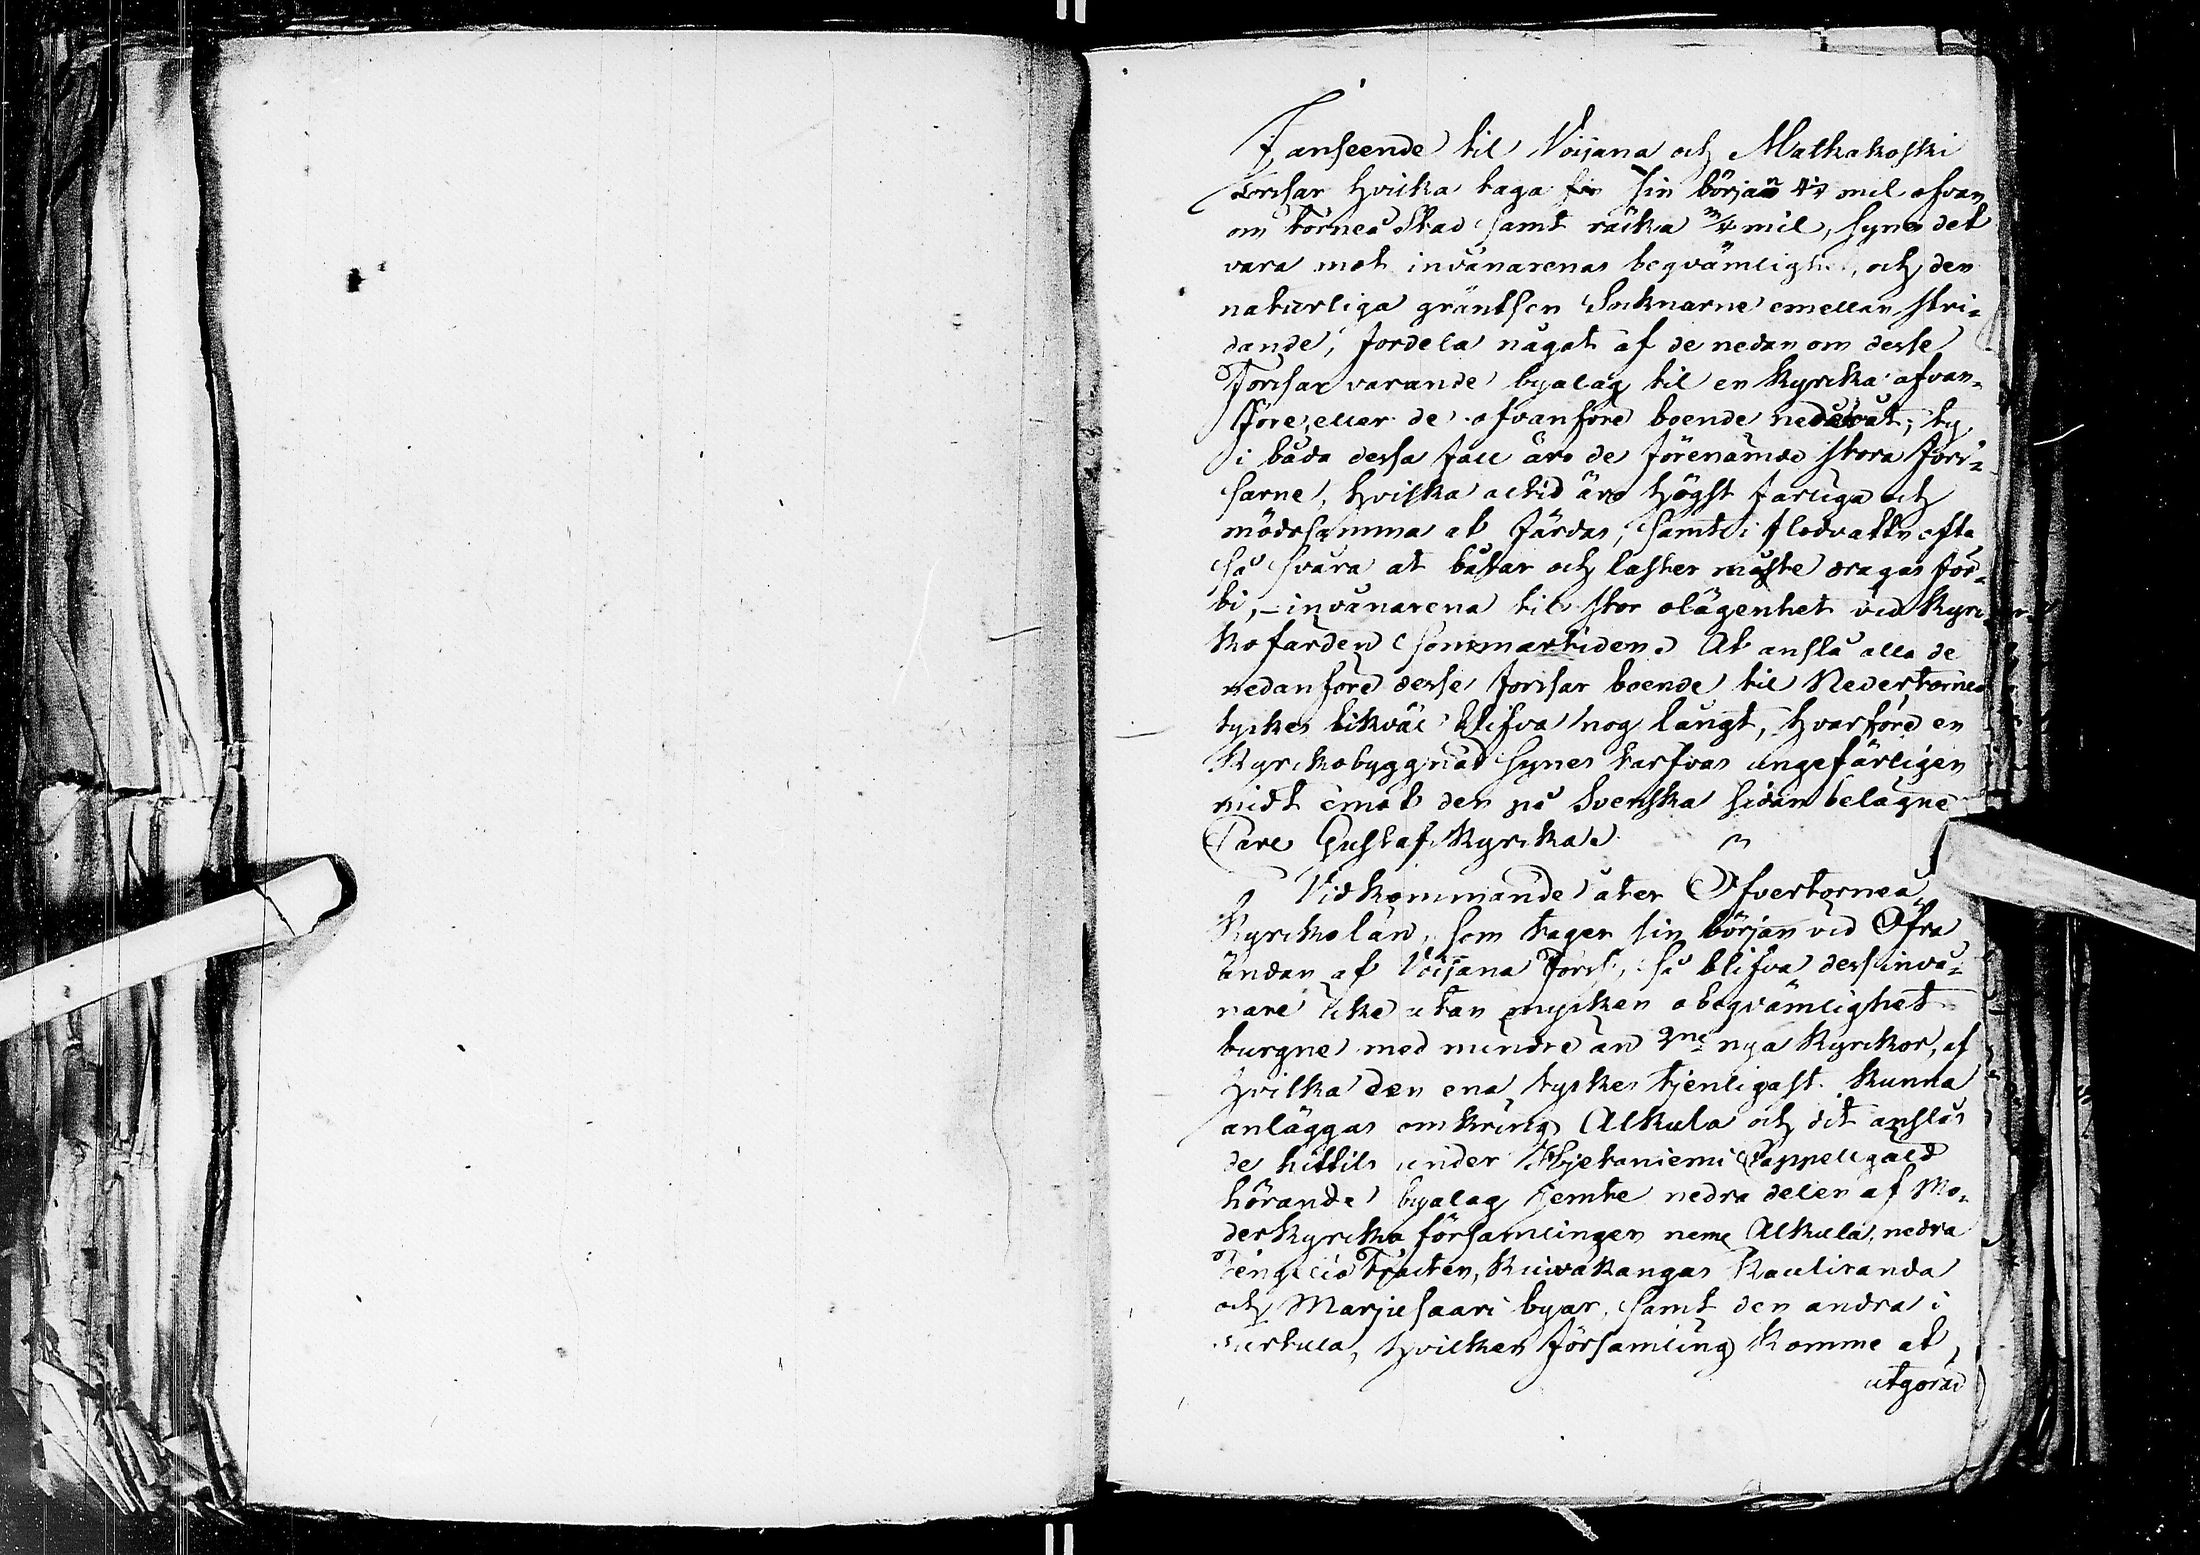 I anseende til Voijana och Matkakoski
Forssar hvilka taga sin början 4¼ mil ofvan
om Torneå Stad samt räcka ¾ mil, synes det
vara mot invånarenas beqvämlighet, och den
naturliga gräntsen Soknarne emellan stri-
dande, fördela något af de nedan om desse
Forssar varande byalag til en Kyrcka ofvan-
före, eller de ofvanföre boende nedåt; ty
i båda dessa fall äro de förenämde stora for-
sarne, hvilka altid äro högst farliga och
mödosamma at färdas, samt i flodvattn ofta
så svåra at båtar och laster måste dragas för-
bi, – invånarena til stor olägenhet vid Kyrc-
kofärden sommartiden. At anslå alla de
nedanföre desse forssar boende til Nedertorneå
tyckes likväl blifva nog långt, hvarföre en
Kyrckobyggnad synes tarfvas ungefärligen
midt emot den på Svenska sidan belägne
Carl Gustaf Kyrcka.
Vidkommande åter Öfvertorneå
Kyrckolän, som tager sin början vid Öfra
ändan af Voijana Forss, så blifva dess invå-
nare icke utan mycken obeqvämlighet
burgne med mindre än 2ne nya Kyrckor, af
hvilka den ena tyckes tjenligast kunna
anläggas omkring Alkula och dit anslås
de hittils under Hjetaniemi Cappellgäld
hörande byalag jemte nedra delen af Mo-
derkyrcko församlingen neml Alkula, nedra
Tengeliö Trackten, Kuivakangas Kauliranda
och Marjusaari byar, samt den andra i
Turtula, hvilken församling komme at
utgöra